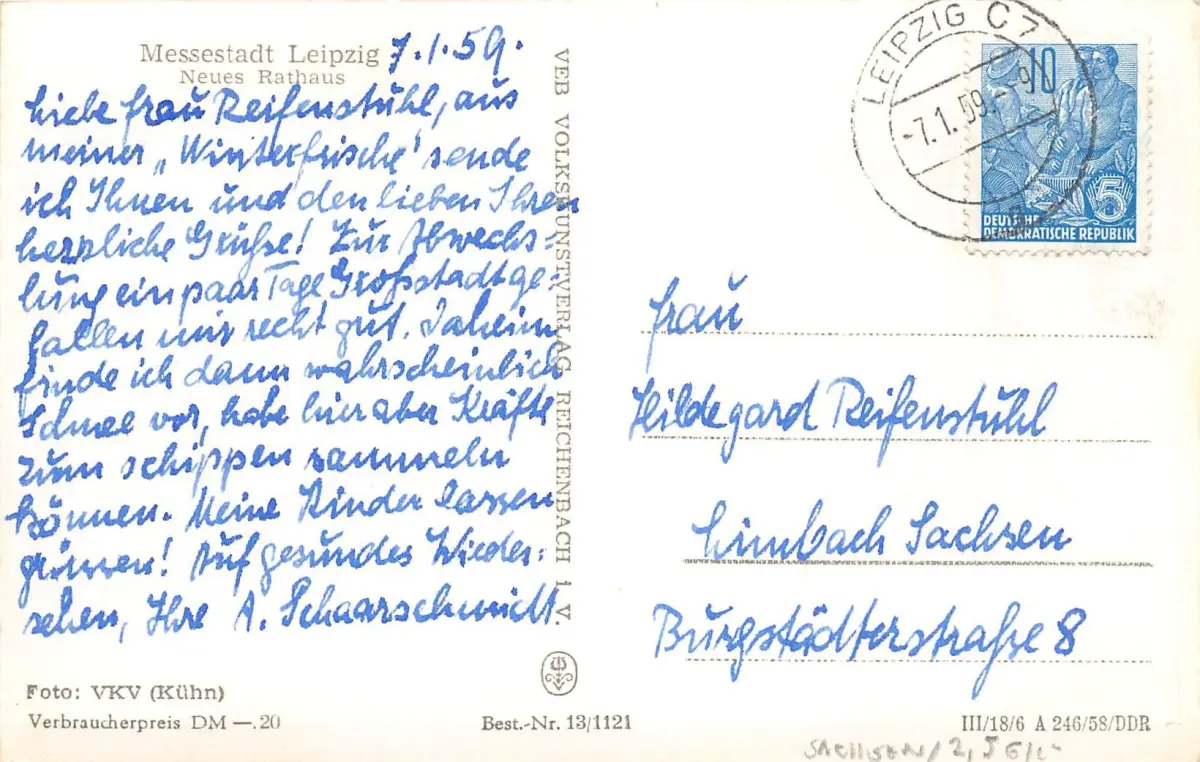 Messestadt Leipzig 7.1.59.
Neues Rathaus
Liebe Frau Reifenstuhl, aus
meiner „Winterfrische“ sende
ich Ihnen und den lieben Ihren
herzliche Grüße! Zur Abwechs-
lung ein paar Tage Großstadt ge-
fallen mir recht gut. Daheim
finde ich dann wahrscheinlich
Schnee vor, habe hier aber Kräfte
zum schippen sammeln
können. Meine Kinder lassen
grüssen! Auf gesundes Wieder-
sehen, Ihre A. Schaarschmidt.
Foto: VKV (Kühn)
Verbraucherpreis DM —.20
VEB VOLKSKUNSTVERLAG REICHENBACH i. V.
Best.-Nr. 13/1121
LEIPZIG C7
-7.1.59.-9
10
5
DEUTSCHE
DEMOKRATISCHE REPUBLIK
Frau
Hildegard Reifenstuhl
Limbach Sachsen
Burgstädterstraße 8
III/18/6 A 246/58/DDR
SACHSEN/2,5